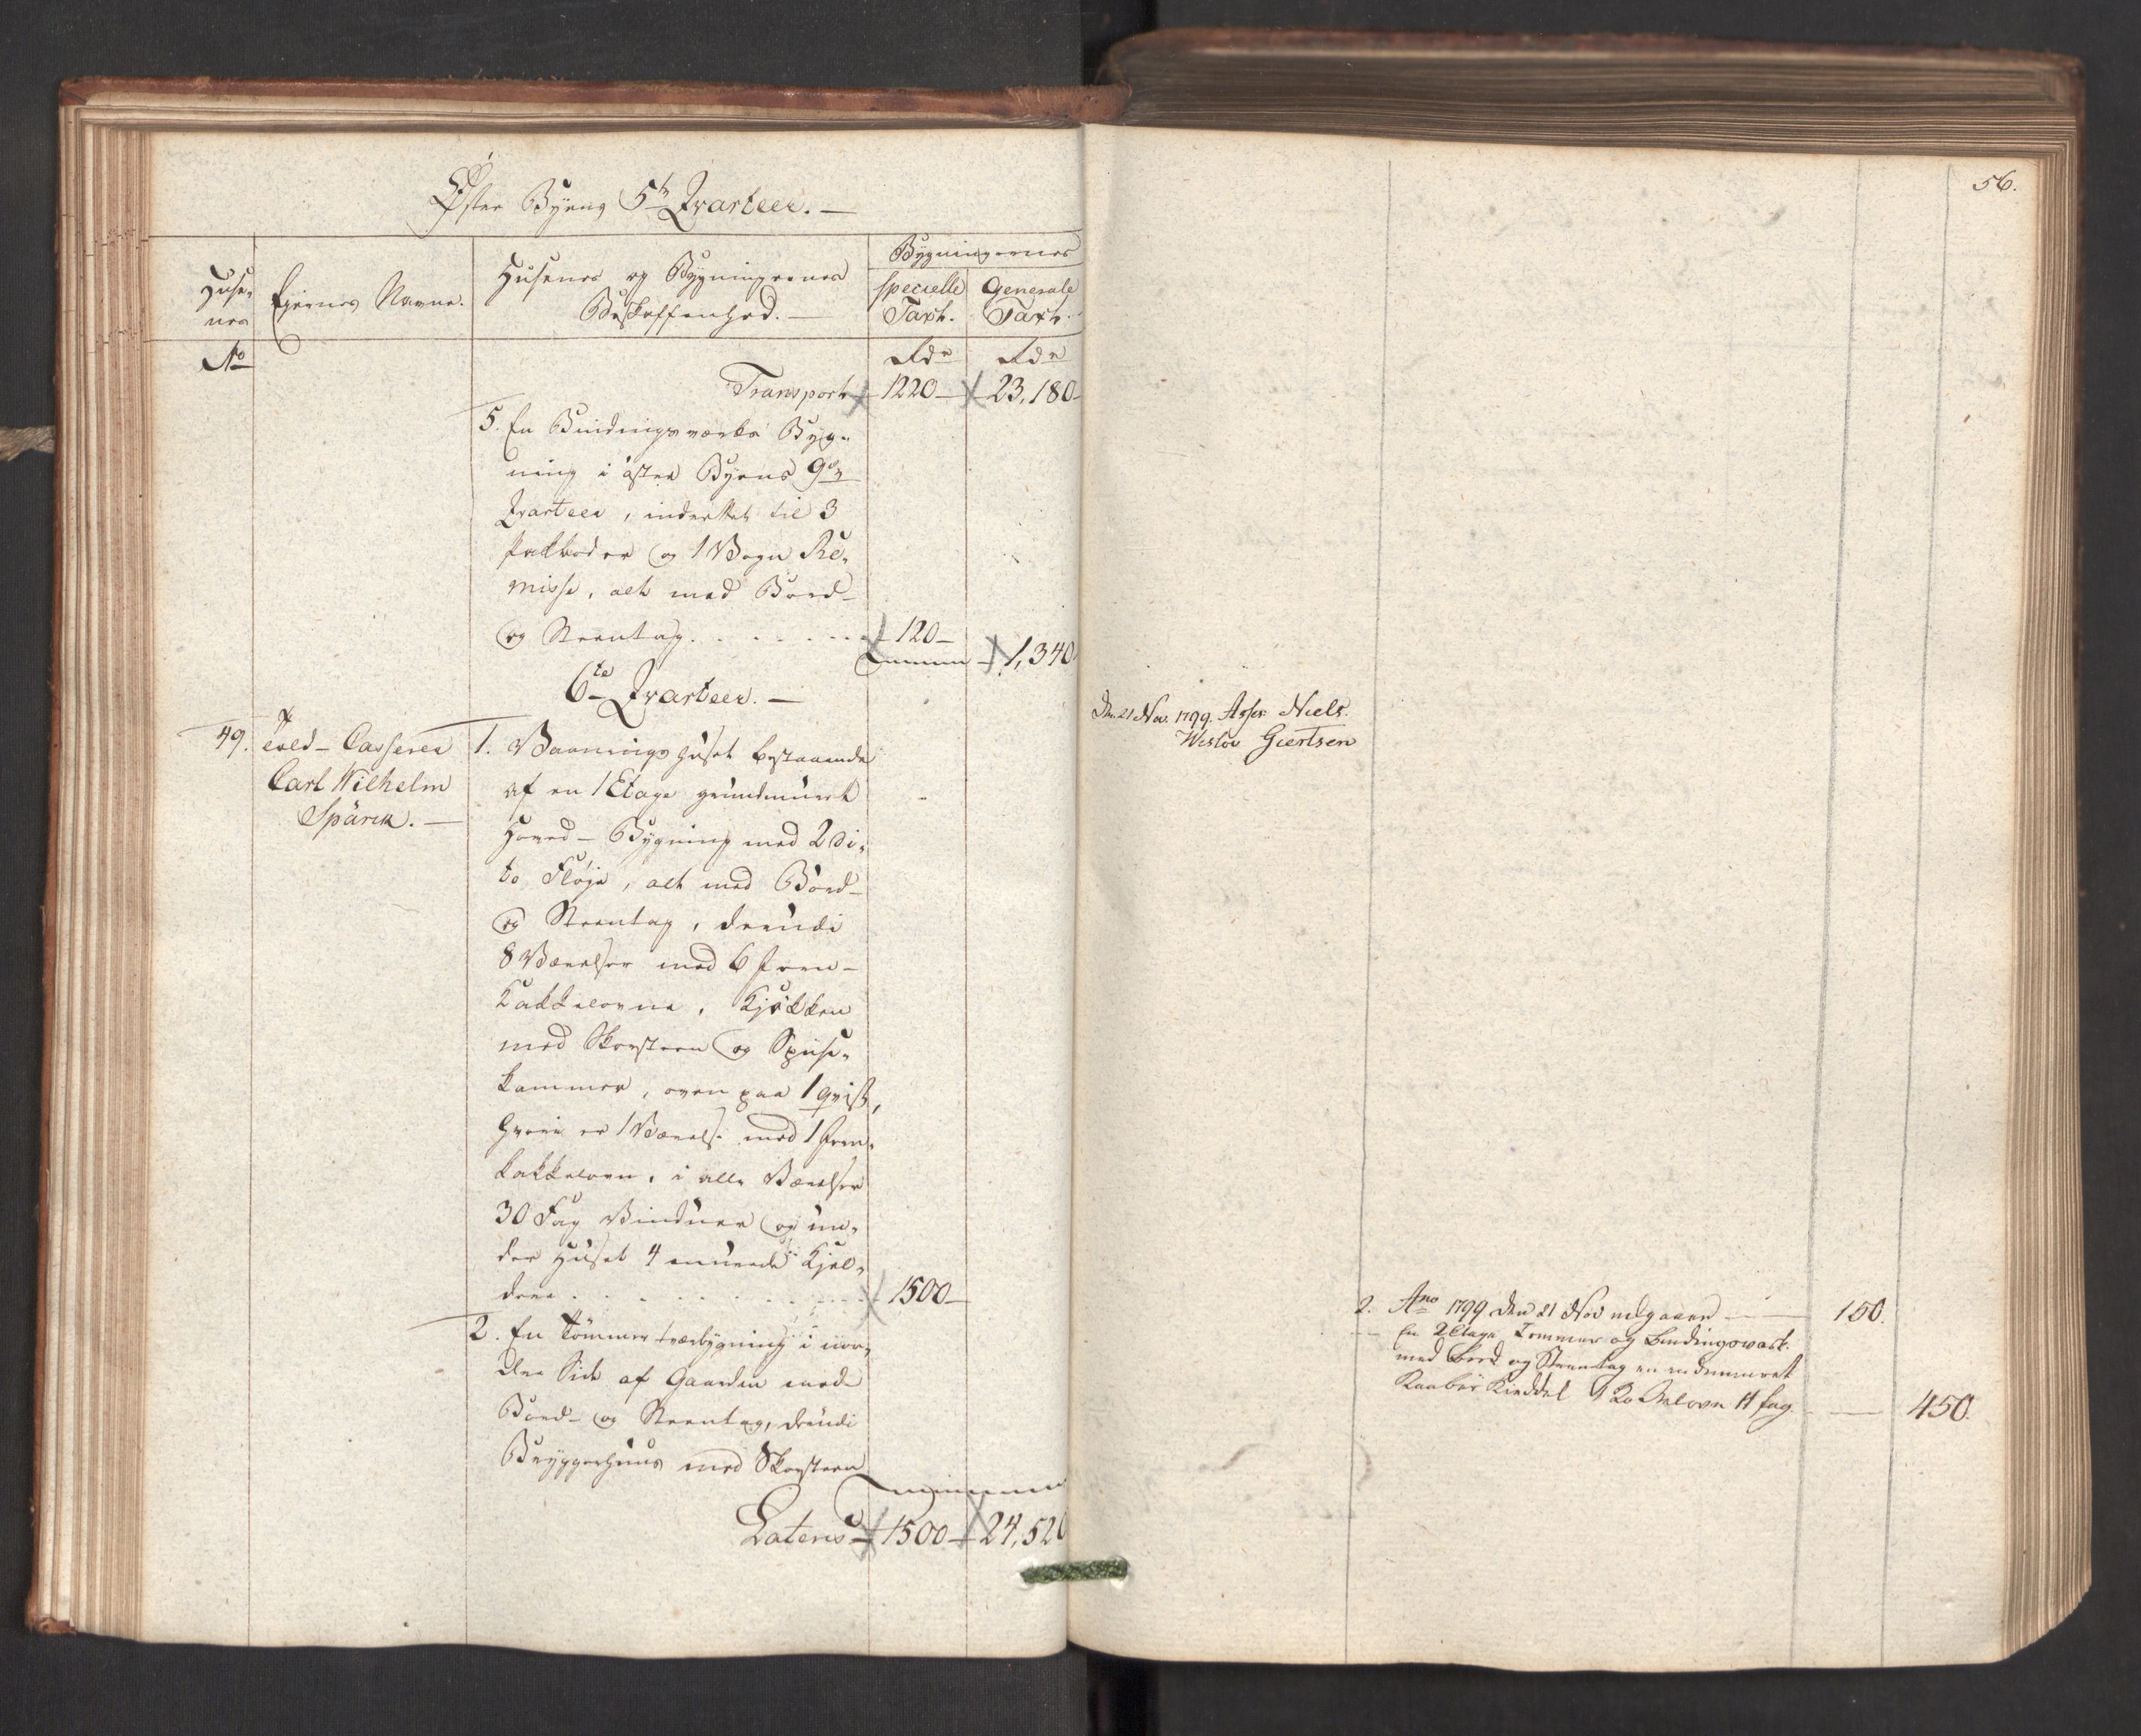 Øster Byens 5te Qvarteer. —
Huse-
nes
Ejernes Navne.
Husenes og Bygningernes
Beskaffenhed. —
Bygningernes
specielle
Taxt.
Generale
Taxt.
No
Rdr Rdr
Transport 1220 — 23,180 —
5. En Bindingsværks Byg-
ning i øster Byens 9de
Qvarteer, indrettet til 3
Pakboder og 1 Vogn Re-
misse, alt med Bord-
og Steentag. . . . . . . 120 —
1,340
6te Qvarteer. —
49. Carl Wilhelm
Spärck. —
1. Vaaningshuset bestaaende
af en 1 Etage grundmuurt
Hoved-Bygning med 2 di-
to Fløje, alt med Bord-
og Steentag, deriudi
8 Værelser med 6 Jern-
Kakkelovne, Kjøkken
med Skorsteen og Spise-
kammer, oven paa 1 qvist,
hvori er 1 Værelse med 1 Jern-
kakkelovn, i alle Værelser
30 Fag Vinduer og un-
der Huset 4 muurede Kjel-
dere . . . . . . . 1500 —
2. En Tømmer tværbygning i nor-
dre Side af Gaarden med
Bord- og Steentag, deriudi
Bryggerhuus med Skorsteen
Lateris 1500 — 24,520
56.
Den 21 Nov. 1799. Niels
Weslov Giertsen
2. Ano 1799 den 21 Nov udgaaer — 150.
En 2 Etage Tømmer og Bindingsværk
med Bord og Steentag en
Kielder 1 Kakelovn 11 fag. — 450.